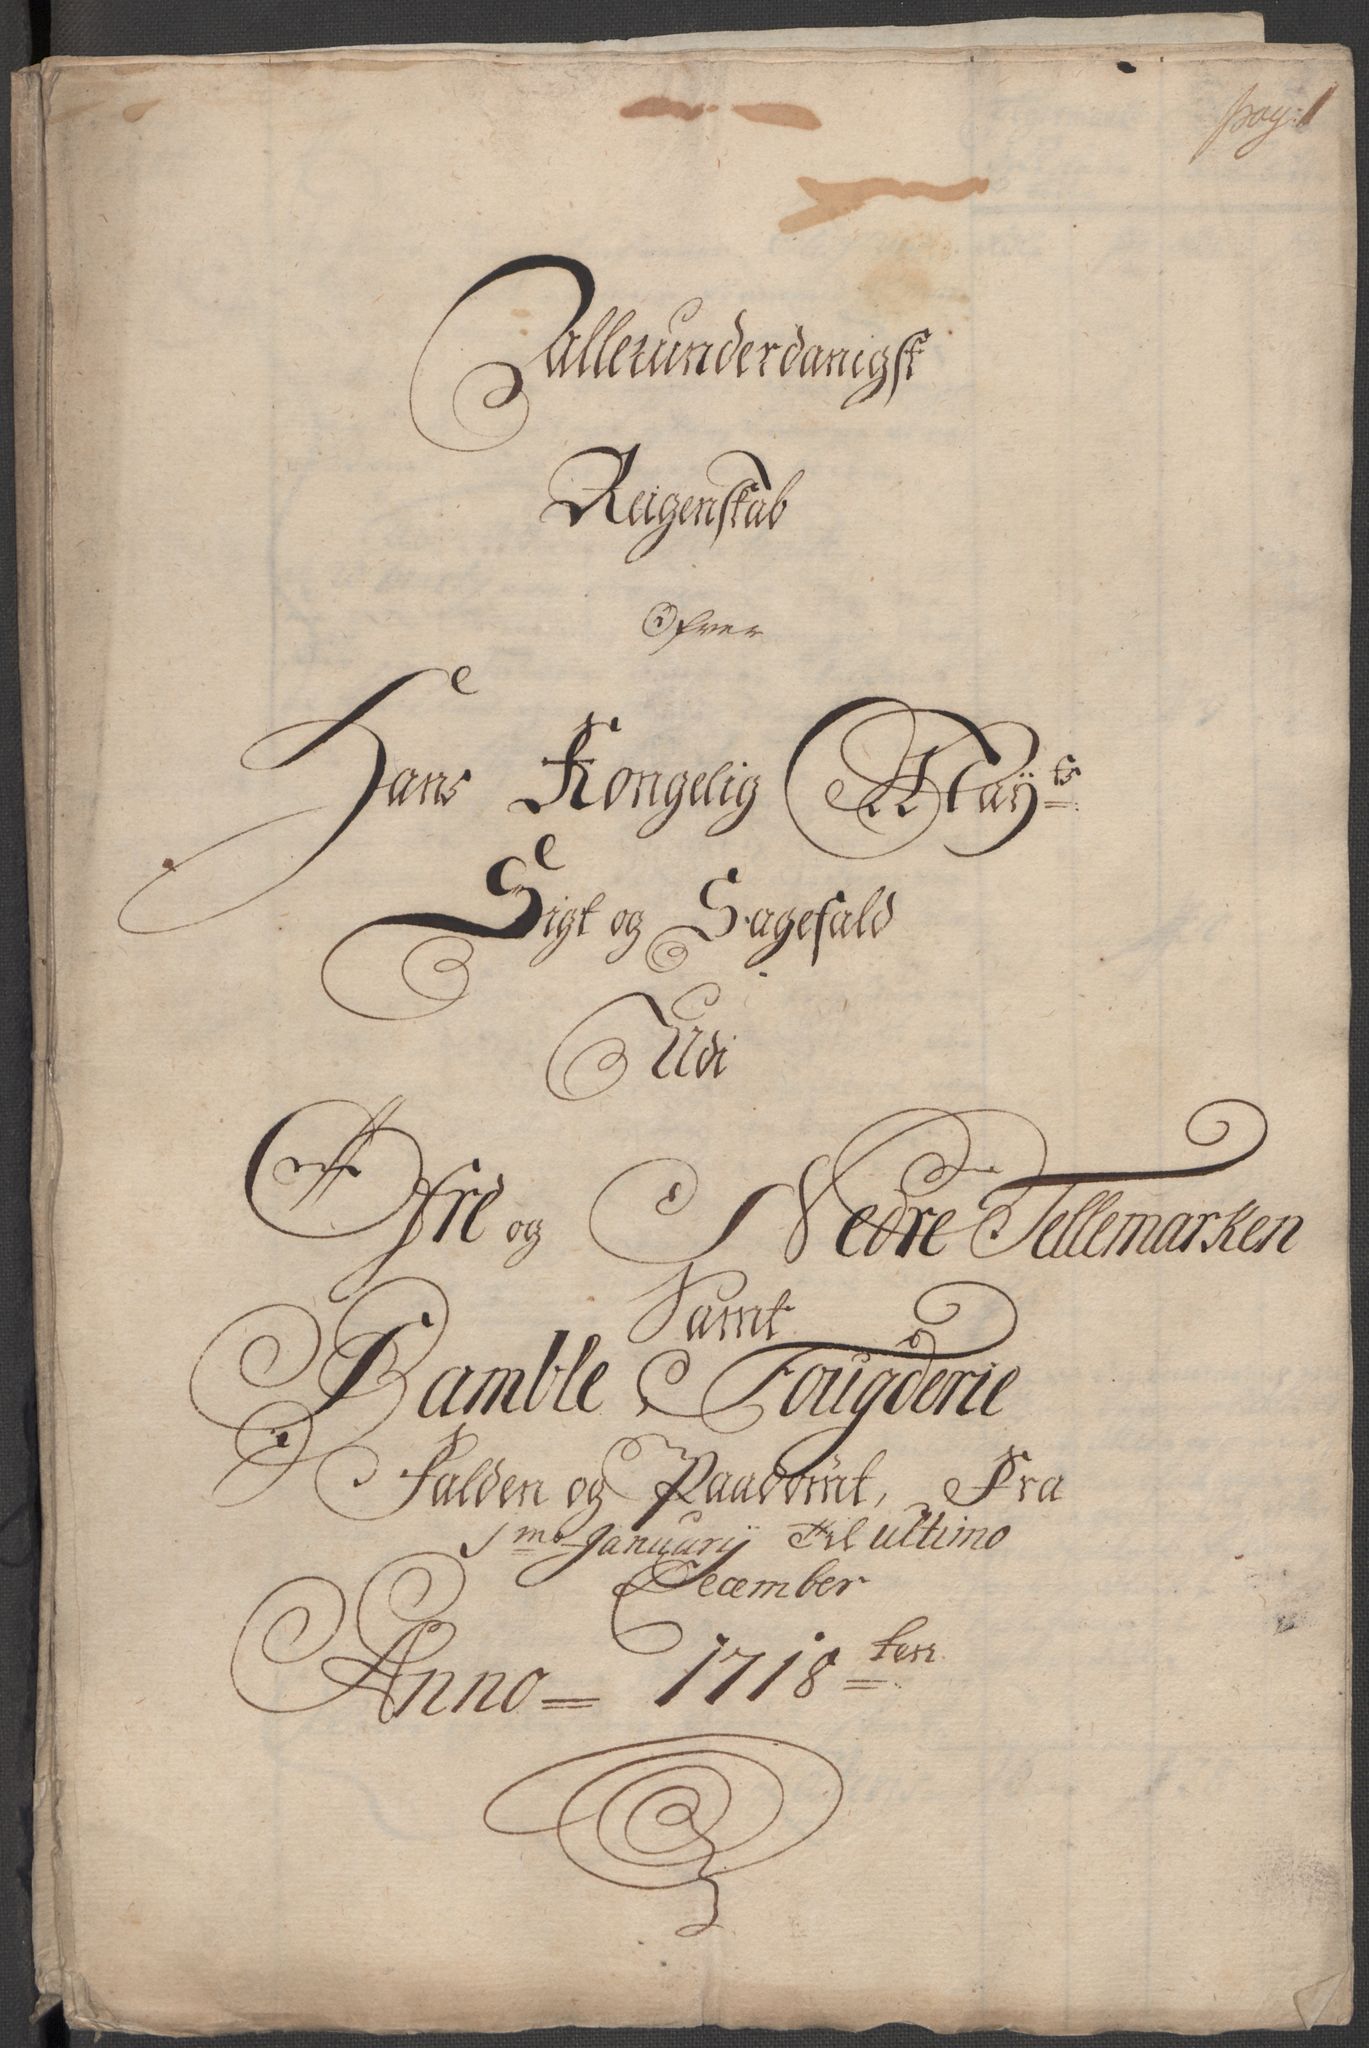 pag: 1
Allerunderdanigst
Reigenskab
Ofver
Hans Kongelig Mayts
Sigt og Sagefald
Udi
Øfre og Nedre Tellemarken
Samt
Bamble Fougderie
Falden og Paadømt, Fra
1mo Januarij til ultimo
December
Anno 1718ten